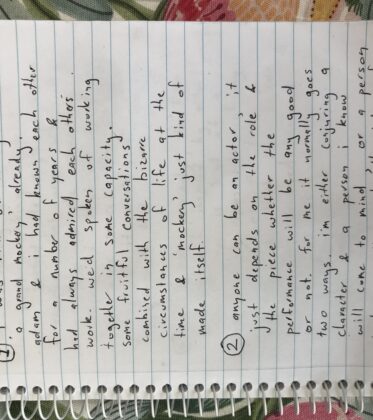 ①
a grand mockery already.
adam & i had known each other
for a number of years &
had always admired each others
work. we'd spoken of working
together in some capacity.
some fruitful conversations
combined with the bizarre
circumstances of life at the
time & 'mockery' just kind of
made itself.
② anyone can be an actor, it
just depends on the role &
the piece whether the
performance will be any good
or not. for me it normally goes
two ways. i'm either conjuring a
character & a person i know
will come to mind, or a person